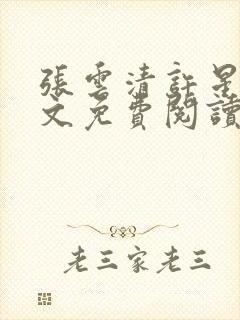 張雲清許星
文免費閱讀
老三家老三